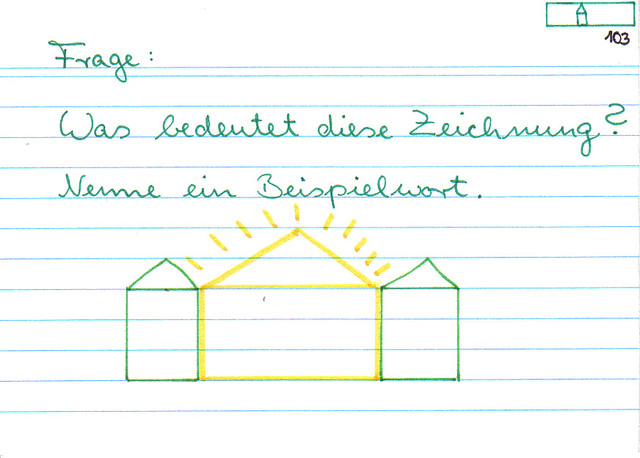 103
Frage:
Was bedeutet diese Zeichnung?
Nenne ein Beispielwort.